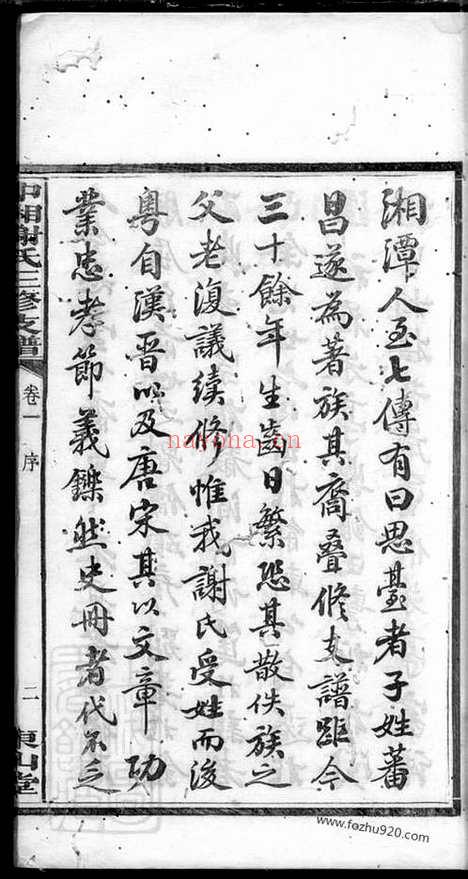 湘潭人至七傳有曰思臺者子姓蕃
昌遂為著族其裔叠修支譜距今
三十餘年生齒日繁恐其散佚族之
父老復議續修惟我謝氏受姓而後
粵自漢晉以及唐宋其以文章功
業忠孝節義鑠然史冊者代不乏
中湘謝氏三修支譜
卷一
序
二
東山堂
nayona.cn
www.fozhu920.com